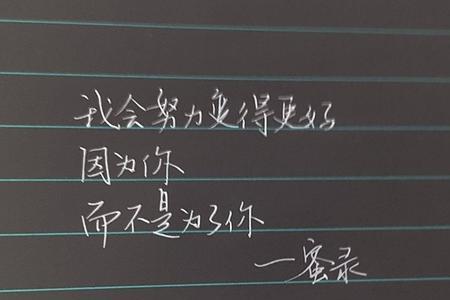 我会努力变得更好
因为你
而不是为了你
一蜜录